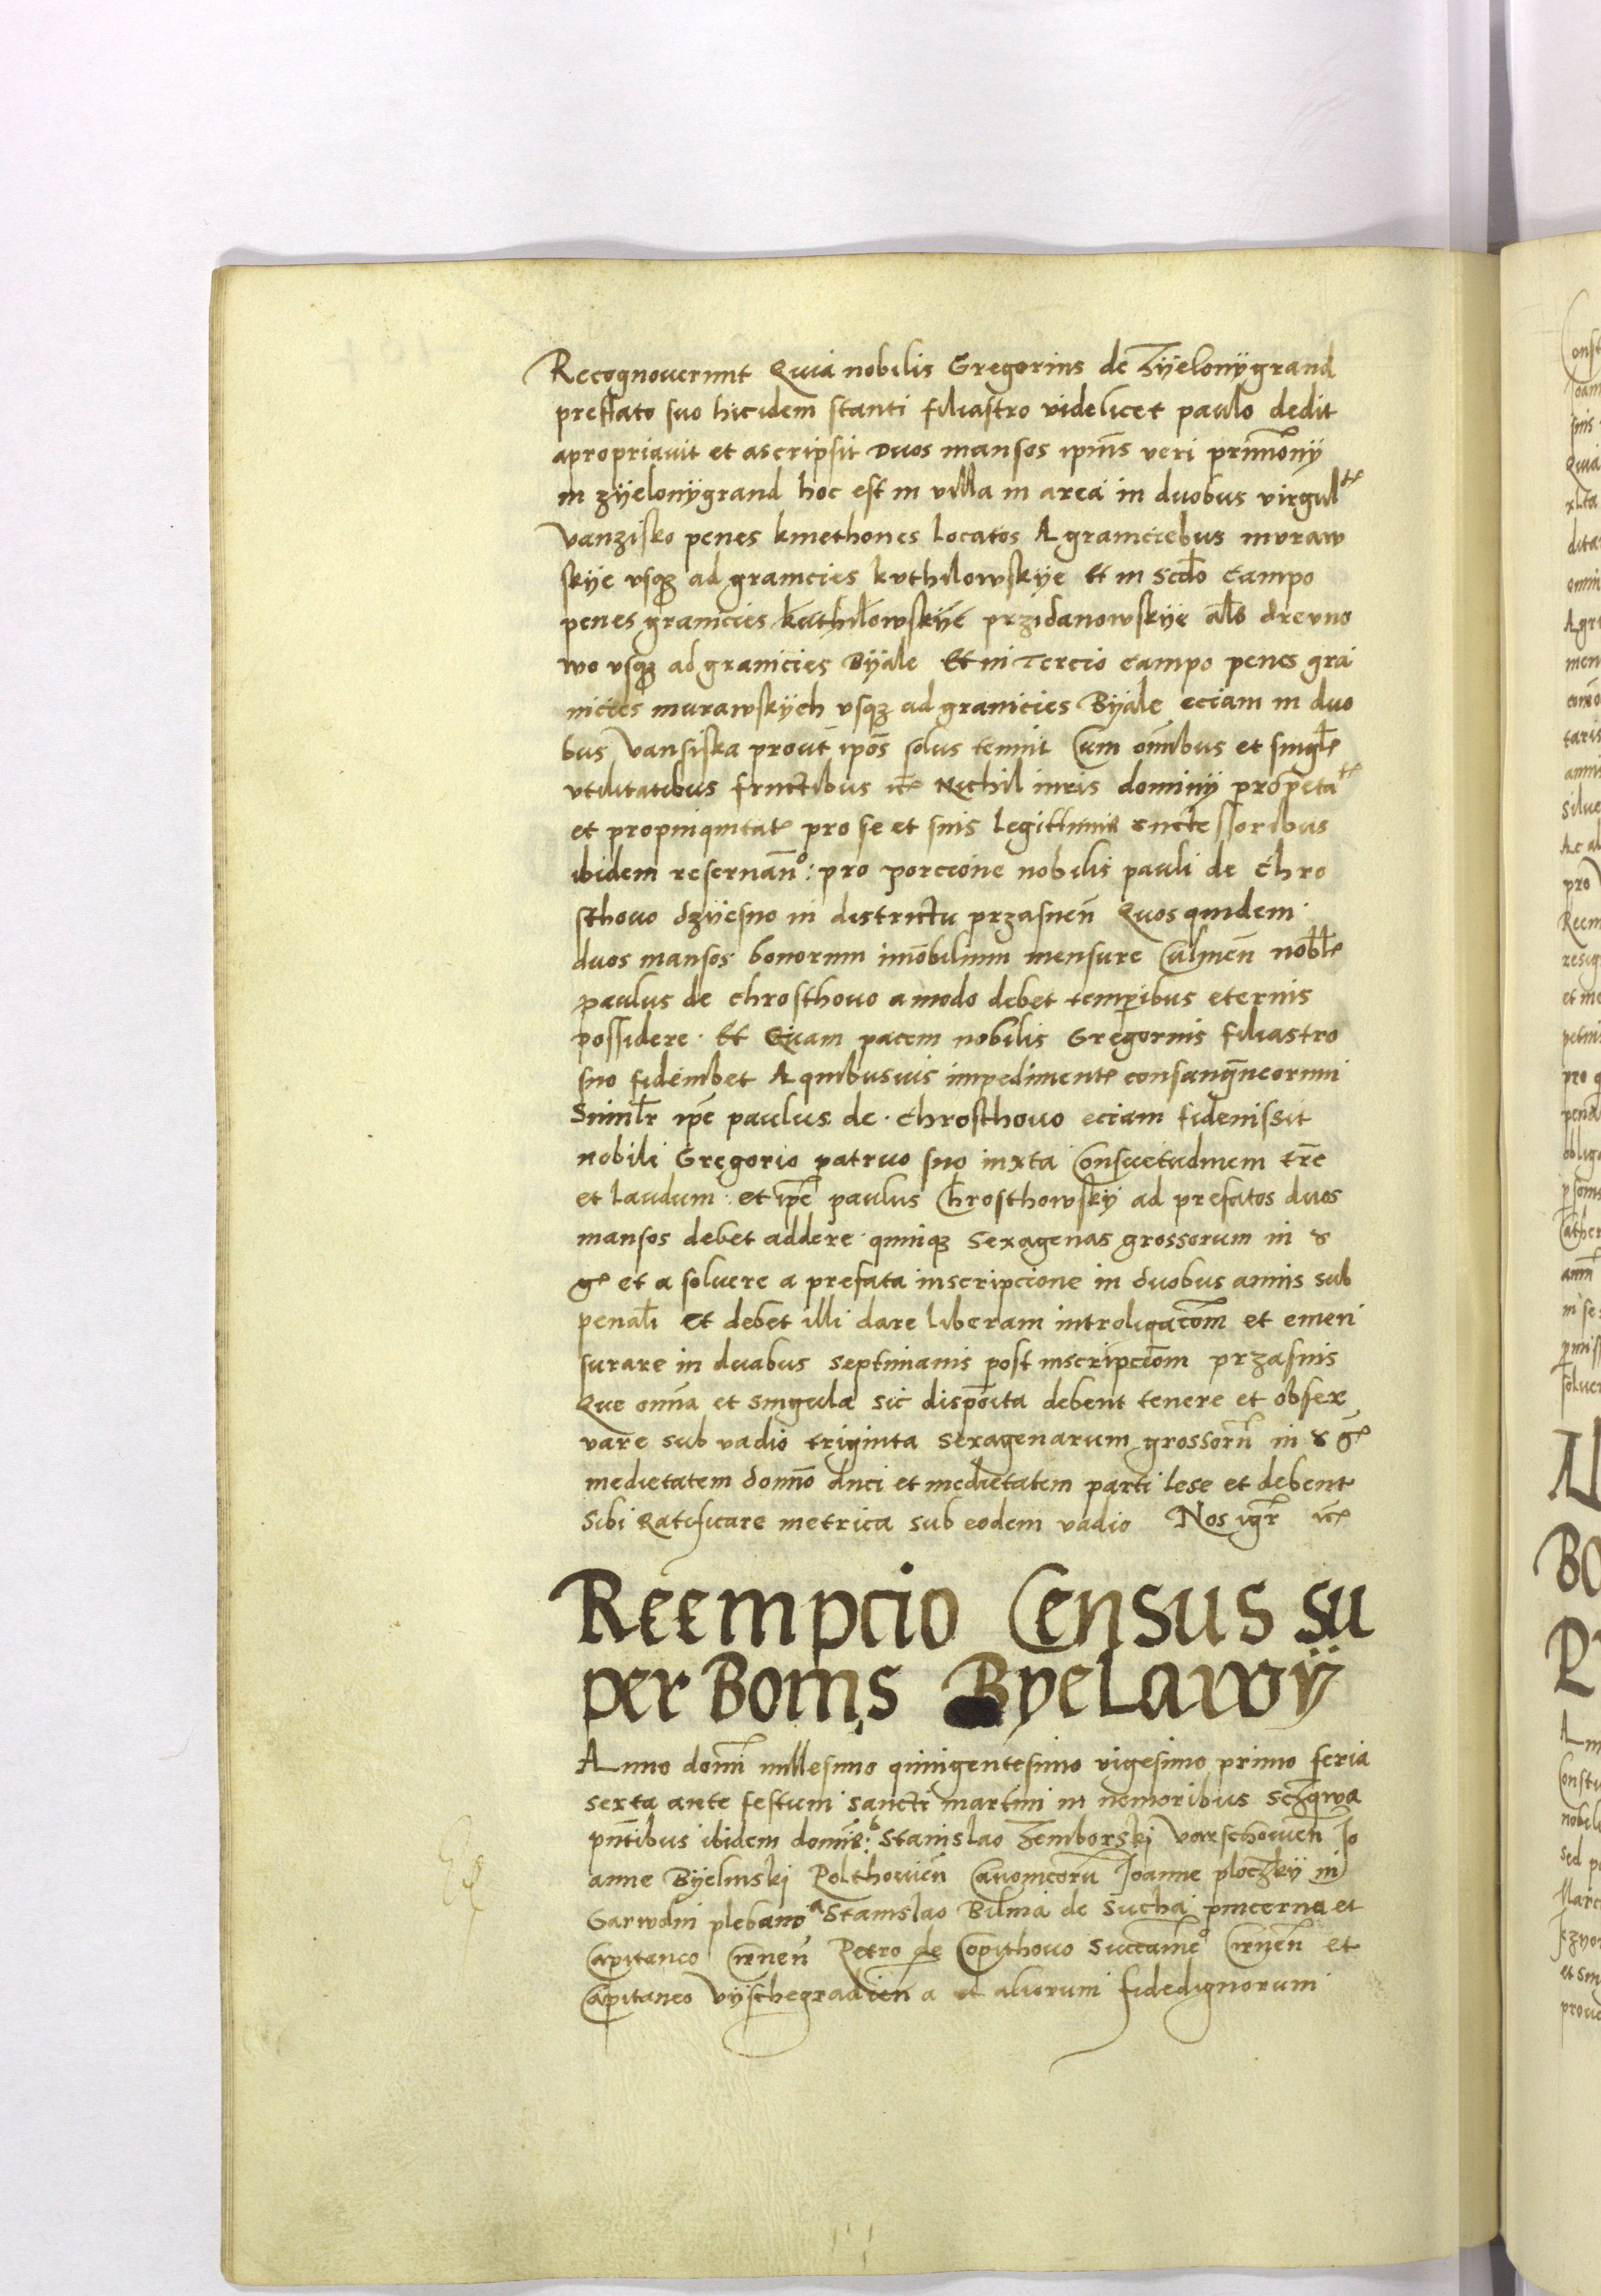 Recognoverunt Quia nobilis Gregorius de Zÿelonÿgrand
preffato suo hicidem stanti filiastro videlicet paulo dedit
apropriavit et ascripsit Duos mansos ipius veri prímonÿ
in zÿelonÿgrand hoc est in villa in area in duobus virgul
Vanzisko penes kmethones locatos A graniciebus muraw
skÿe vsqȝ ad granicies kuthilowskÿe Et in Scdo campo
penes granicies kuthilowskÿe przidanowskÿe als drevno
wo vsqȝ ad granicies Bÿale Et in Tercio campo penes gra
nicies murawskÿch vsqȝ ad granicies Bÿale eciam in duo
bus Vansiska prout ipos solus tenuit Cum omibus et singul
vtilitatibus fructibus etc Nichil iuris dominÿ propeta
et propinquitat pro se et suis legittimis succtessoribus
ibidem reservano: pro porcione nobilis pauli de Chro
sthovo dzÿesno in districtu przasnen Quos quidem
duos mansos bonorum imobilium mensure Culmen nobl
paulus de chrosthovo amodo debet temporibus eternis
possidere. Et Quam pacem nobilis Gregorius filiastro
suo fideiubet A quibusuis impediment consanguineorum
Simlr ipe paulus de. Chrosthovo eciam fideiussit
nobili Gregorio patruo suo iuxta Consuetudinem tre
et laudum. et ipe paulus Chrosthowskÿ ad prefatos duos
mansos debet addere. quinqȝ Sexagenas grossorum in &
g et a solvere a prefata inscripcione in duobus annis sub
penali Et debet illi dare liberam introligacom et emen
surare in duabus septimanis post inscripciom przasnis
Que omia et singula sic disposita debent tenere et obser
vare sub vadio triginta sexagenarum grossoru in & g
medietatem domio duci et medietatem parti lese et debent
Sibi Ratificare metrica sub eodem vadio Nos igr etc
Reempcio Census su
per Bonis Byelawÿ
Anno domi millesimo quingentesimo vigesimo primo feria
sexta ante festum sancti martini in nemoribus Sczgwa
pntibus ibidem domis: Stanislao Zemborski varschowien Jo
anne Bÿelinski Polthovien Canonicoru Joanne ploczkÿ in
Garwolin plebano Stanislao Bilina de Sucha pincerna et
Capitaneo Cirnen Petro de Copithovo Succameo Cirnen et
Capitaneo Vÿschegradien a et aliorum fidedignorum